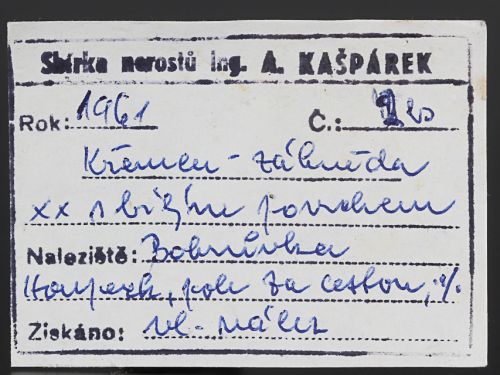 Sbírka nerostů ing. A. KAŠPÁREK
Rok: 1961 Č.:
Křemen - záhněda
xx s bílým povrchem
Naleziště: Bobrůvka
pole za cestou,
Získáno: vl. nález